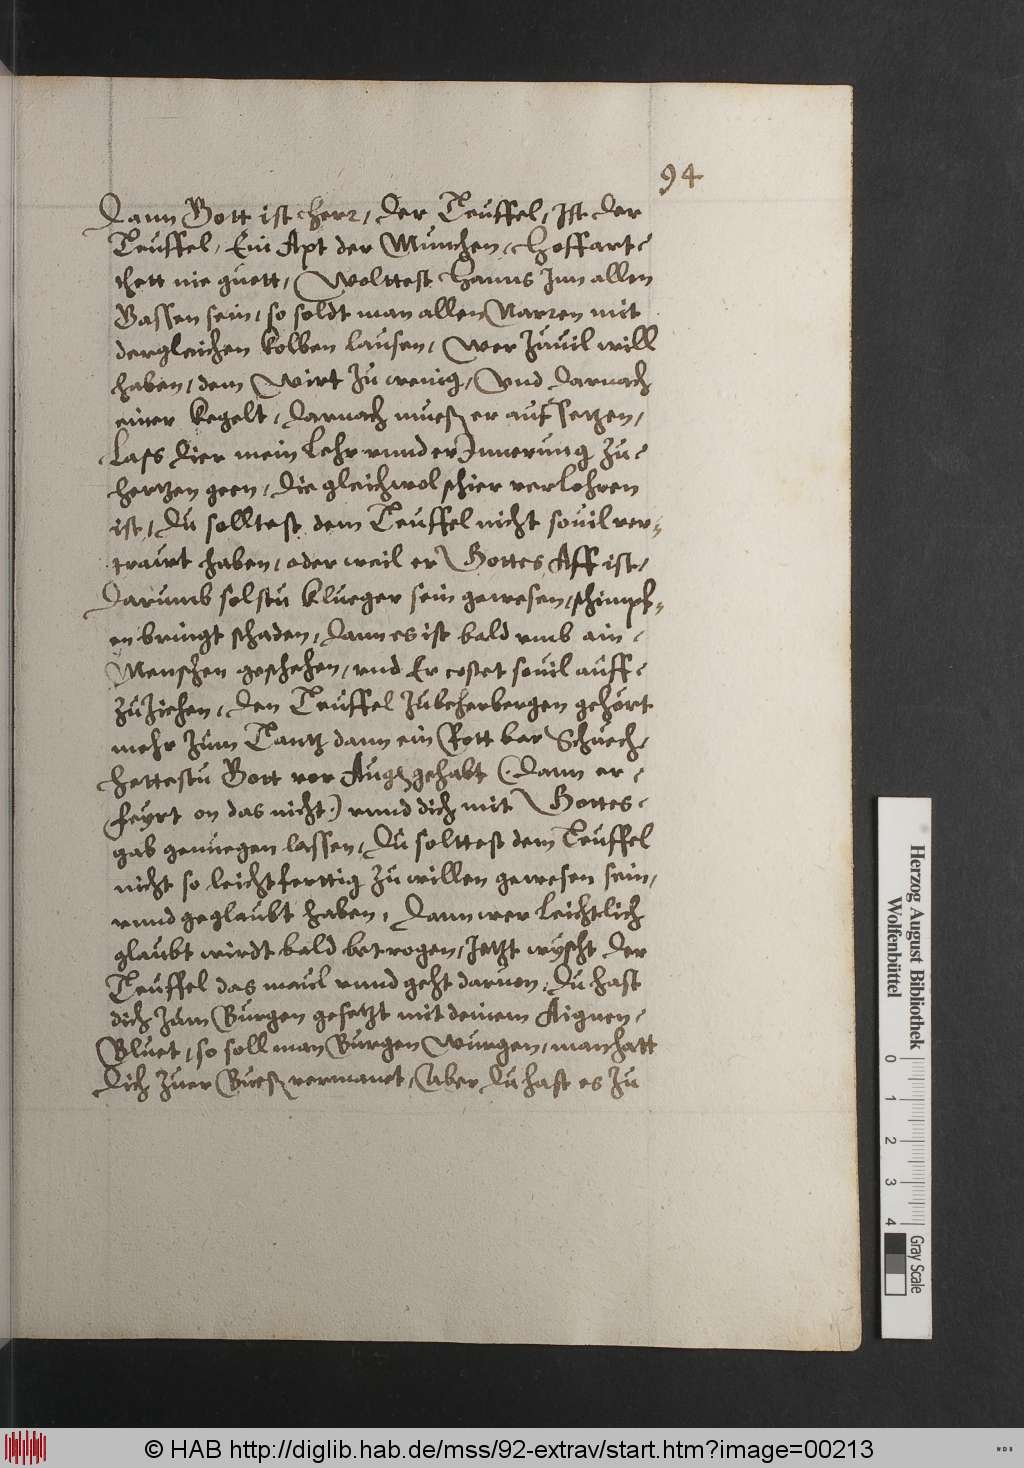 94
Dann Gott ist Herr, der Teuffel, Ist der
Teuffel, Ein Apt der Munchen, Hoffart-
thett nie guett, Wolttest Hanns Inn allen
Gassen sein, so soldt man allen Narren mit
dergleichen kolben lausen, Wer zuuil will
haben, dem Wirt zu wenig, Vnd darnach
einer kegelt, darnach muess er auffsetzen,
Lass dier mein Lehr vnnd erInnerung zu-
hertzen geen, die gleichwol schier verlohren
ist, du solltest dem Teuffel nicht souil ver-
trawt haben, oder weil er Gottes Aff ist,
Darumb solstu klueger sein gewesen, schimpf-
en bringt schaden, dann es ist bald vmb ain-
Menschen geschehen, vnd Er costet souil auff-
zuziehen, den Teuffel zubeherbergen gehört
mehr zum Tantz dann ein Rott bar Schuech,
hettestu Gott vor Augen gehabt (dann er-
feyrt on das nicht) vnnd dich mit Gottes-
gab genuegen lassen, Du solttest dem Teuffel
nicht so leichtferttig zu willen gewesen sein,
vnnd geglaubt haben, dann wer leichtlich
glaubt wirdt bald betrogen, Jetzt wyscht der
Teuffel das maul vnnd geht daruon, du hast
dich zum Burgen gesetzt mit deinem Aignen-
Bluet, so soll man Burgen Wurgen, man hatt
dich zuer Buess vermanet, Aber du hast es zu
Herzog August Bibliothek
Wolfenbüttel
0 1 2 3 4
Gray Scale
© HAB http://diglib.hab.de/mss/92-extrav/start.htm?image=00213
WDB